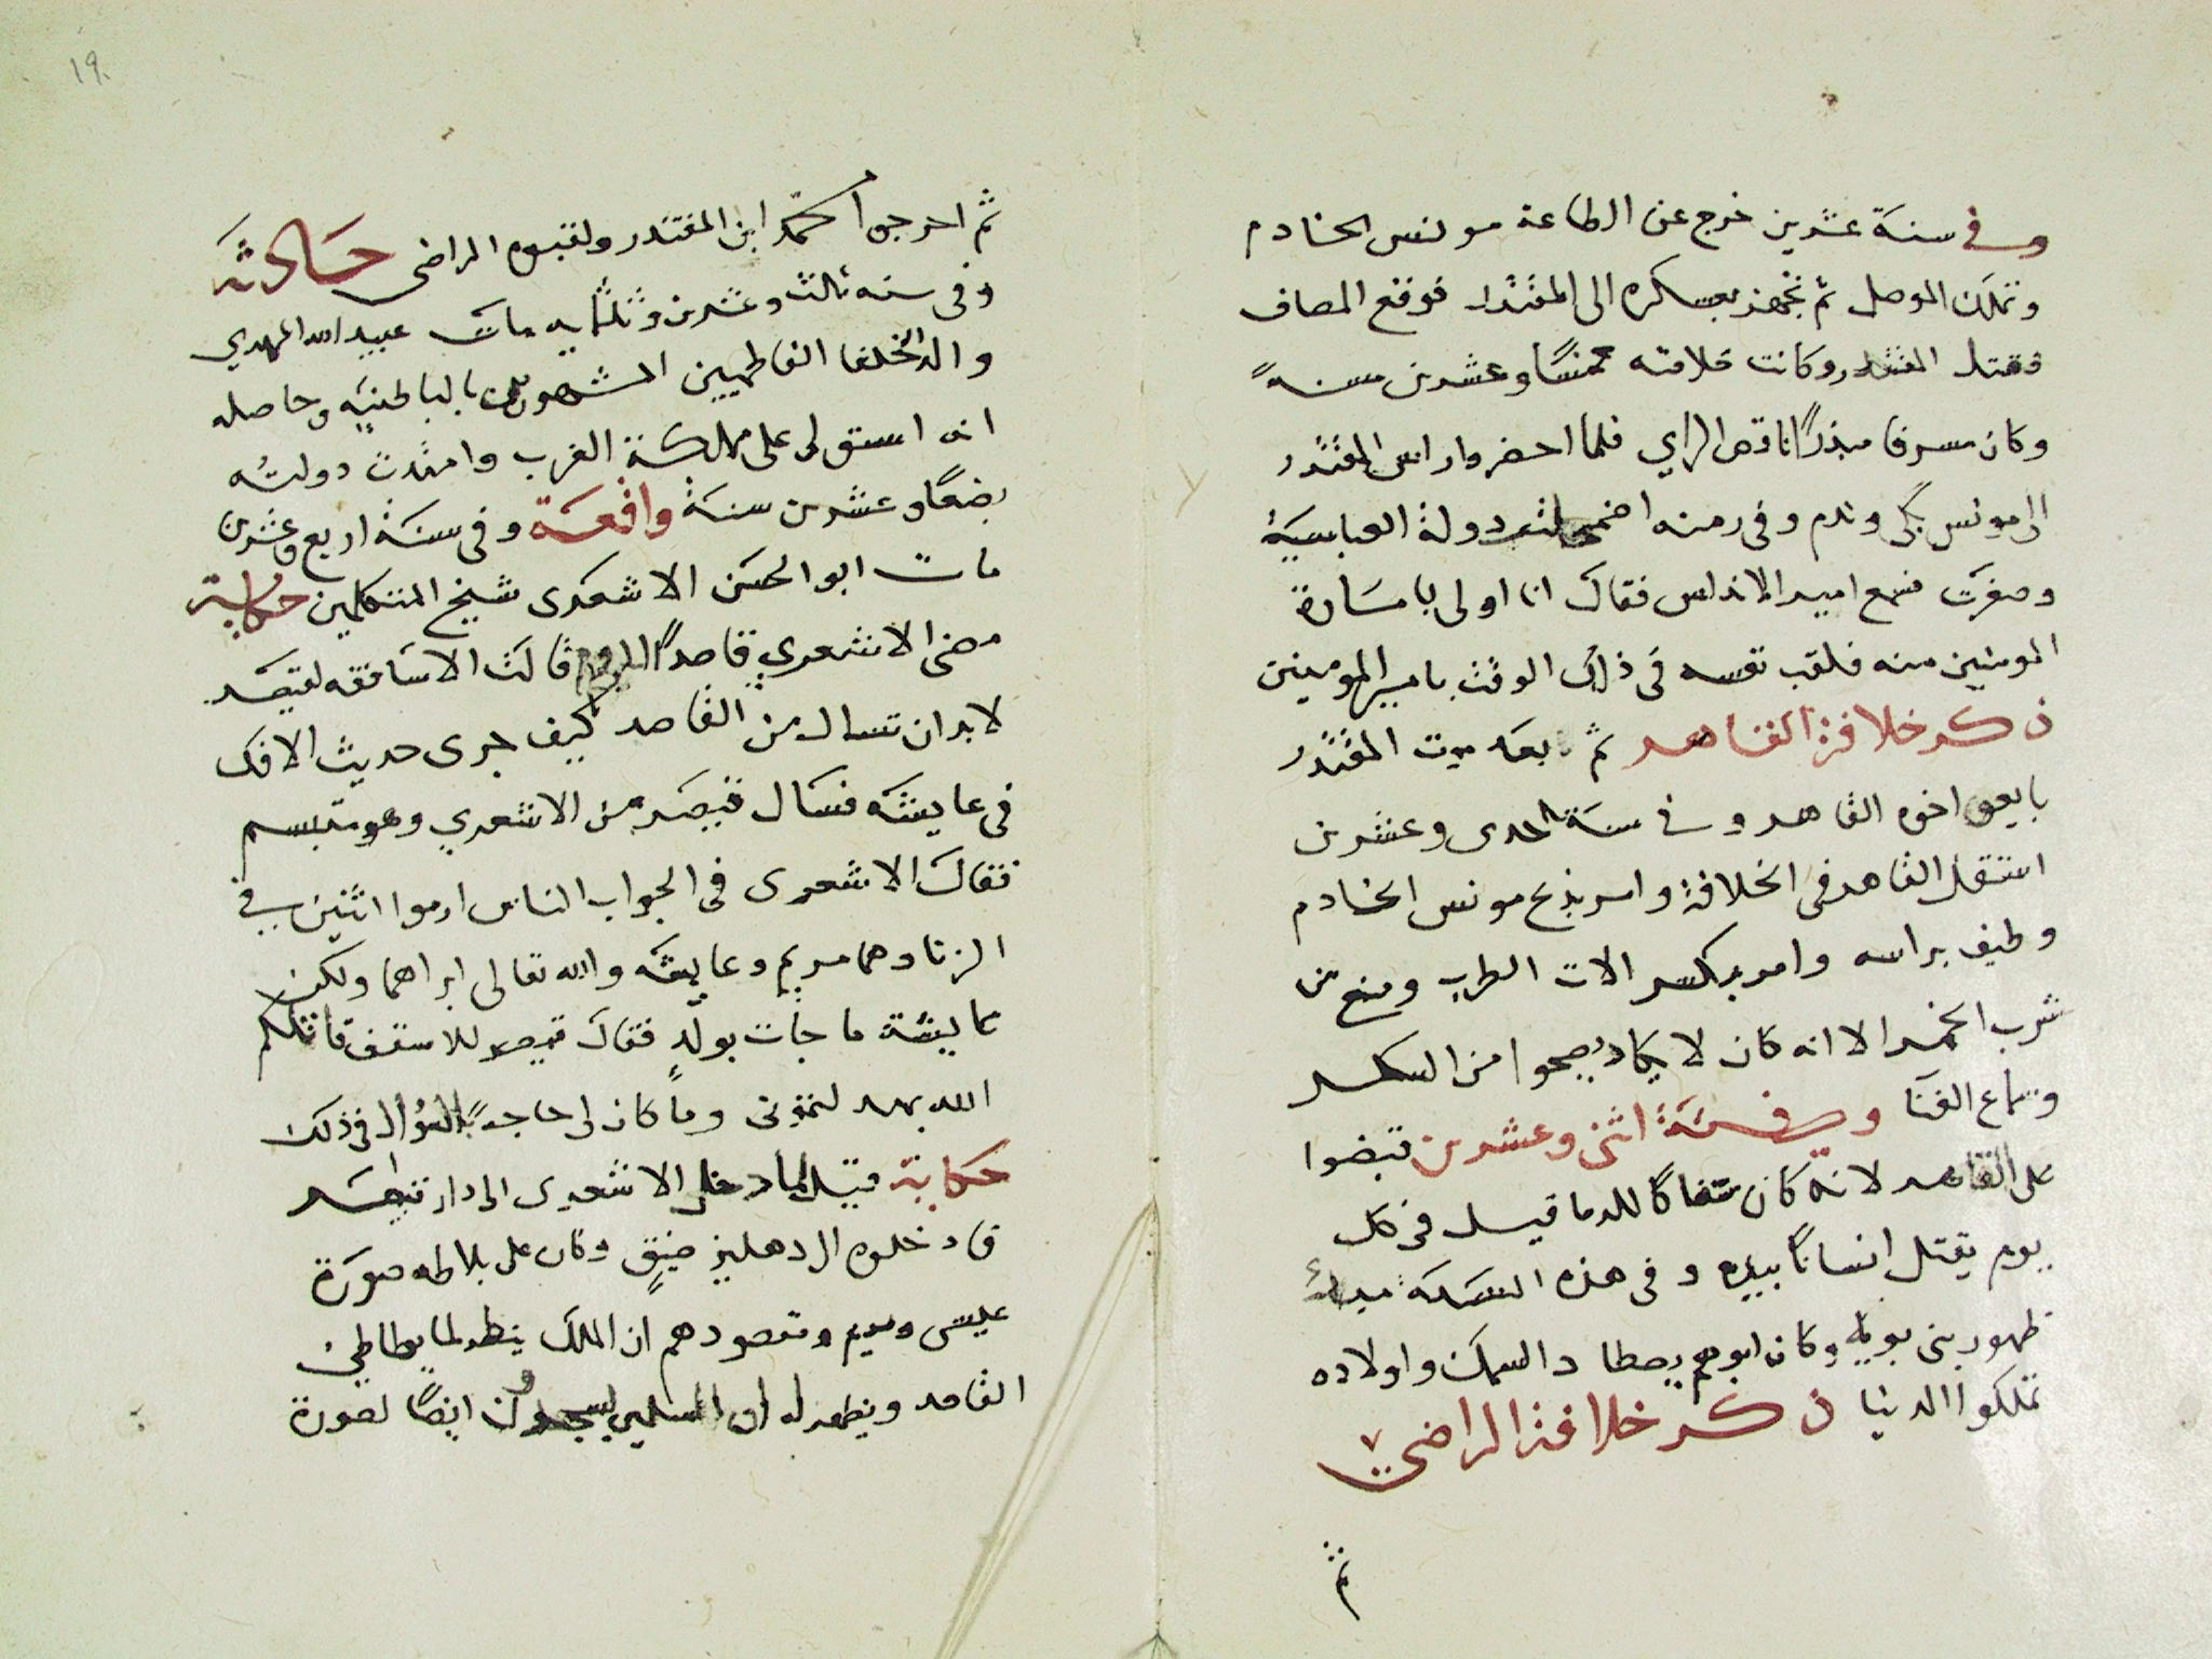 وفي سنة عشرين خرج عن الطاعة مونس الخادم
وتملك الموصل ثم تجهز بعسكره الى المقتدر فوقع المصاف
فقتل المقتدر وكانت خلافته خمسًا وعشرين سنةً
وكان مسرفا مبذرًا ناقص الراي فلما احضروا راس المقتدر
الى مونس بكى وندم وفى زمنه اضمحلت دولة العباسية
وصغرت فسمع امير الاندلس فقال انا اولى بامارة
المومنين منه فلقب نفسه فى ذلك الوقت بامير المومنين
ذكر خلافة القاهر ثم بعد موت المقتدر
بايعوا اخوه القاهر وفي سنة احدى وعشرين
استقل القاهر فى الخلافة وامر بذبح مونس الخادم
وطيف براسه وامر بكسر الات الطرب ومنع من
شرب الخمر الا انه كان لا يكاد يصحوا من السكر
وسماع الغنا وفي سنة اثنى وعشرين قبضوا
على القاهر لانه كان سفاكًا للدما قيل فى كل
يوم يقتل انسانًا بيده وفى هذه السنة مبدأ
ظهور بنى بويه وكان ابوهم يصطاد السمك واولاده
تملكوا الدنيا ذكر خلافة الراضي
ثم
١٩٠
ثم اخرجوا محمد ابن المقتدر ولقبوه الراضى حادثة
وفى سنه ثالث وعشرين وثلثمايه مات عبيد الله المهدي
والد الخلفا الفاطميين المشهورين بالباطنيه وحاصله
انه استولى على مملكة الغرب وامتدت دولته
بضعًا وعشرين سنة واقعة وفى سنة اربع وعشرين
مات ابو الحسن الاشعرى شيخ المتكلمين حكاية
مضى الاشعري قاصدًا الروم قالت الاساقفه لقيصر
لا بد ان تسال من القاصد كيف جرى حديث الافك
فى عايشه فسال قيصر من الاشعري وهو متبسم
فقال الاشعرى فى الجواب الناس ارموا اثنين في
الزنا وهما مريم وعايشه والله تعالى ابراهما ولكن
عايشة ما جات بولدٍ فقال قيصر للاسقف قاتلكم
الله بهد لتمونى وما كان لى حاجةً بالسؤال فى ذلك
حكاية قيل لما دخل الاشعرى الى دار قيصر
فادخلوه الى دهليز ضيقٍ وكان على بلاطه صورة
عيسى ومريم ومقصودهم ان الملك ينظر لما يطاطئ
القاصد ويظهر له ان المسلمين يسجدون ايضًا لصورة